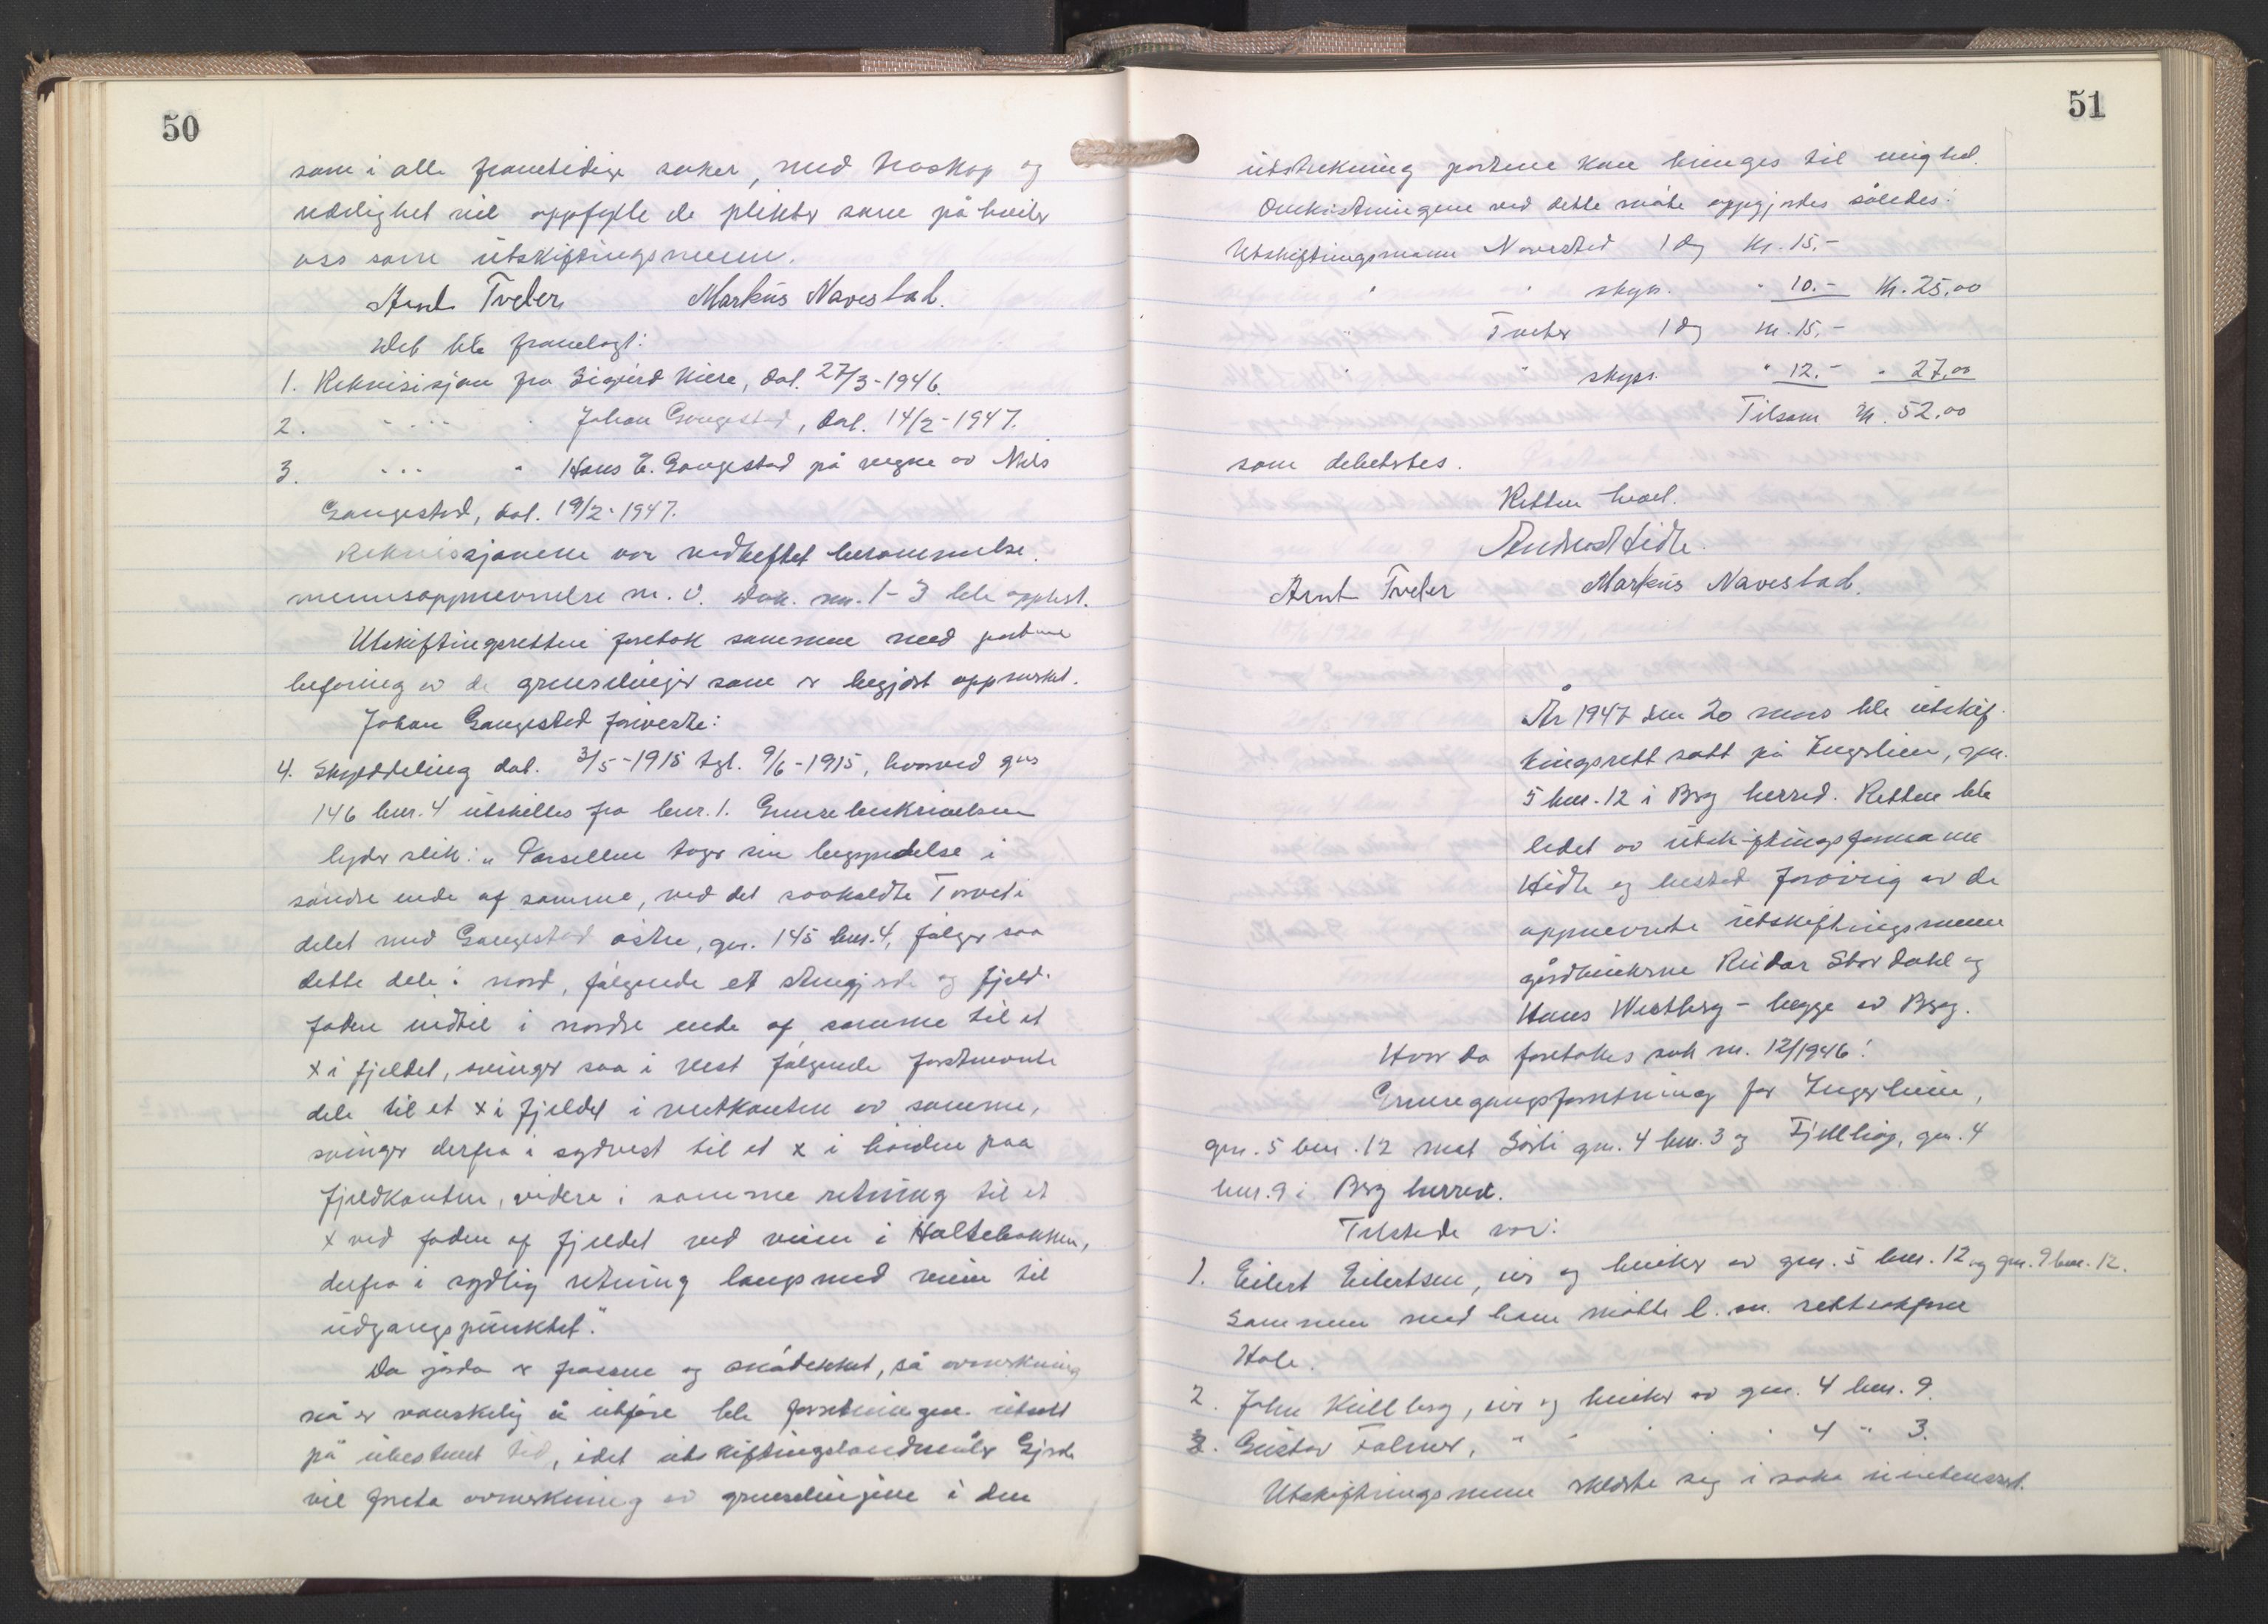 50
som i alle framtidige saker, med troskap og
redelighet vil oppfylle de plikter som påhviler
oss som utskiftingsmenn.
Arnt Tveter Markus Navestad.
Det ble framlagt:
1. Rekvisisjon fra Sigurd Kiere, dat. 27/3-1946.
2. " " " " Johan Gangestad, dat. 14/2-1947.
3. " " " " Hans E. Gangestad på vegne av Nils
Gangestad, dat. 19/2-1947.
Rekvisisjonene var vedheftet berammelse.
mennsoppnevnelse m. v. Dok. nr. 1-3 ble opplest.
Utskiftingsretten foretok sammen med partene
befaring av de grenselinjer som er begjært oppmerket.
Johan Gangestad foreviste:
4. Skylddeling dat. 3/5-1915 tgl. 9/6-1915, hvorved gnr
146 bnr. 4 utskilles fra bnr. 1. Grensebeskrivelsen
lyder slik: „Parsellen tager sin begyndelse i
søndre ende af samme, ved det saakaldte Torvet i
delet med Gangestad østre, gnr. 145 bnr. 4, følger saa
dette dele i nord, følgende et stengjerde og fjeld-
foden nedtil i nordre ende af samme til et
x i fjeldet, svinger saa i vest følgende forstnevnte
dele til et x i fjeldet i vestkanten av samme,
svinger derfra i sydvest til et x i høiden paa
fjeldkanten, videre i samme retning til et
x ved foden af fjeldet ved veien i Haltebakken,
derfra i sydlig retning langs med veien til
udgangspunktet."
Da jorda er frossen og snødekket, så avmerkning
nå er vanskelig å utføre ble forretningen utsatt
på ubestemt tid, idet utskiftingslandmåler Gjerde
vil foreta avmerkning av grenselinjene i den
51
utstrekning partene kan bringes til enighet.
Omkostningene ved dette møte oppgjordes således:
Utskiftingsmann Navestad 1 dg kr. 15.-
" " skyss. " 10.- kr. 25,00
" Tveter 1 dg kr. 15.-
" " skyss. " 12.- " 27,00
Tilsam kr. 52,00
som debetertes.
Retten hevet.
Andreas Hidle.
Arnt Tveter Markus Navestad.
År 1947 den 20 mars ble utskif-
tingsrett satt på Engerlien, gnr.
5 bnr. 12 i Berg herred. Retten ble
ledet av utskiftingsformann
Hidle og bested forøvrig av de
oppnevnte utskiftingsmenn
gårdbrukerne Reidar Stordahl og
Hans Westberg - begge av Berg.
Hvor da foretokes sak nr. 12/1946:
Grensegangsforretning for Engerlien,
gnr. 5 bnr. 12 mot Sørli gnr. 4 bnr. 3 og Fjellhøg, gnr. 4
bnr. 9 i Berg herred.
Tilstede var:
1. Eilert Eilertsen, eier og bruker av gnr. 5 bnr. 12 og gnr. 9 bnr. 12.
Sammen med ham møtte l. m. rettsakfører
Hole.
2. John Kullberg, eier og bruker av gnr. 4 bnr. 9.
3. Gustav Falmer, " " " " 4 " 3.
Utskiftingsmenn erklærte seg i saka uinteressert.